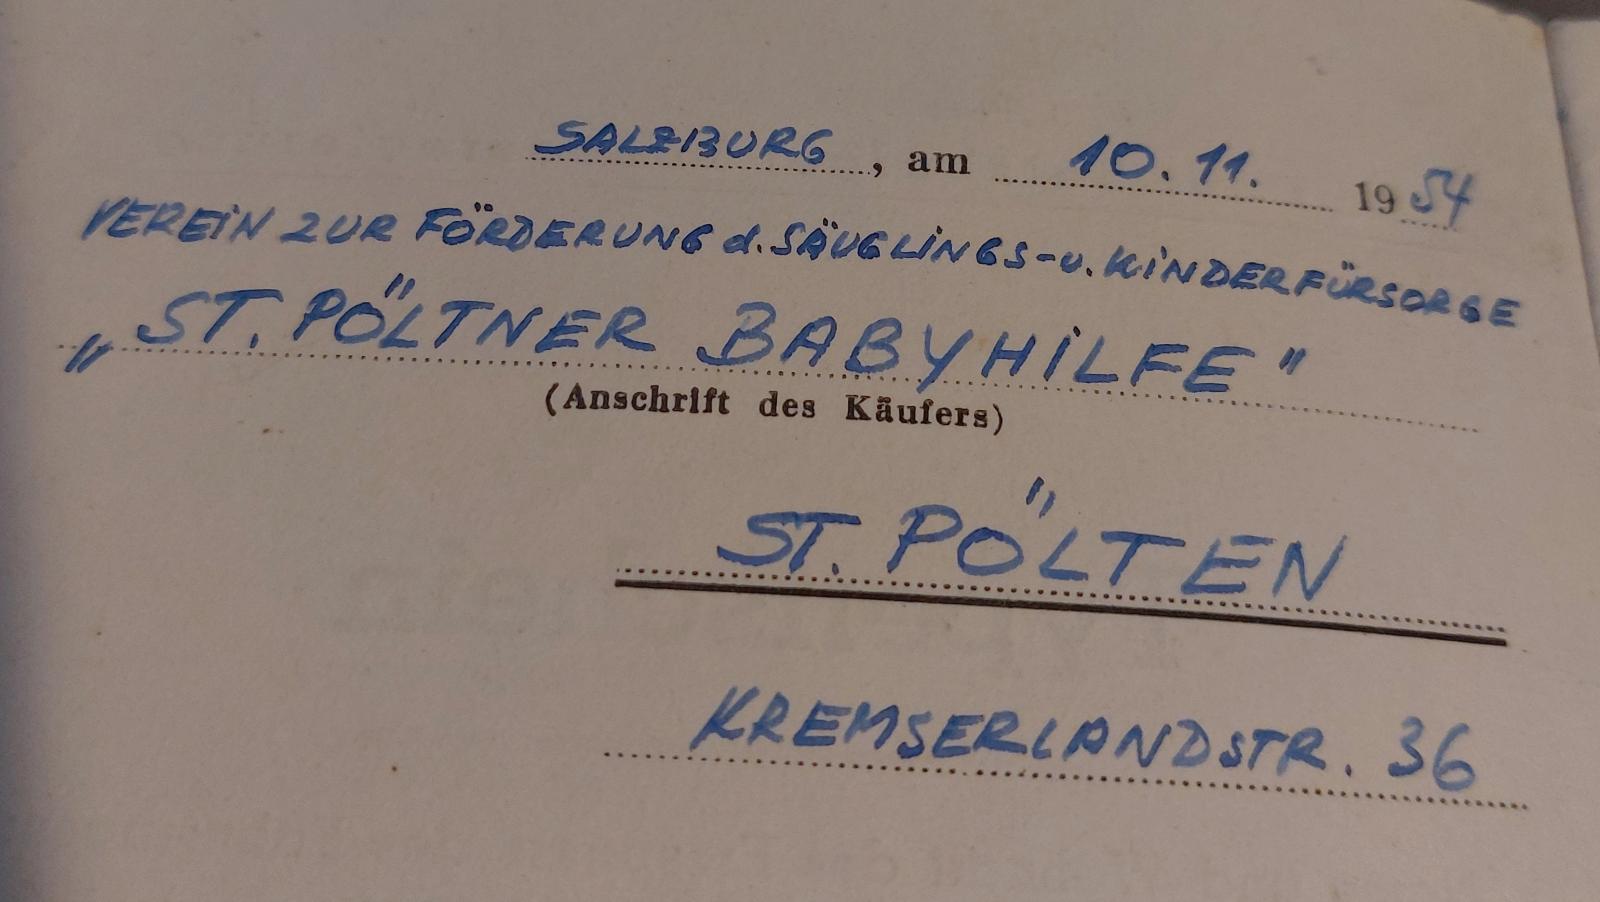 SALZBURG, am 10. 11. 1954
VEREIN ZUR FÖRDERUNG d. SÄUGLINGS- u. KINDERFÜRSORGE
„ST. PÖLTNER BABYHILFE"
(Anschrift des Käufers)
ST. PÖLTEN
KREMSERLANDSTR. 36